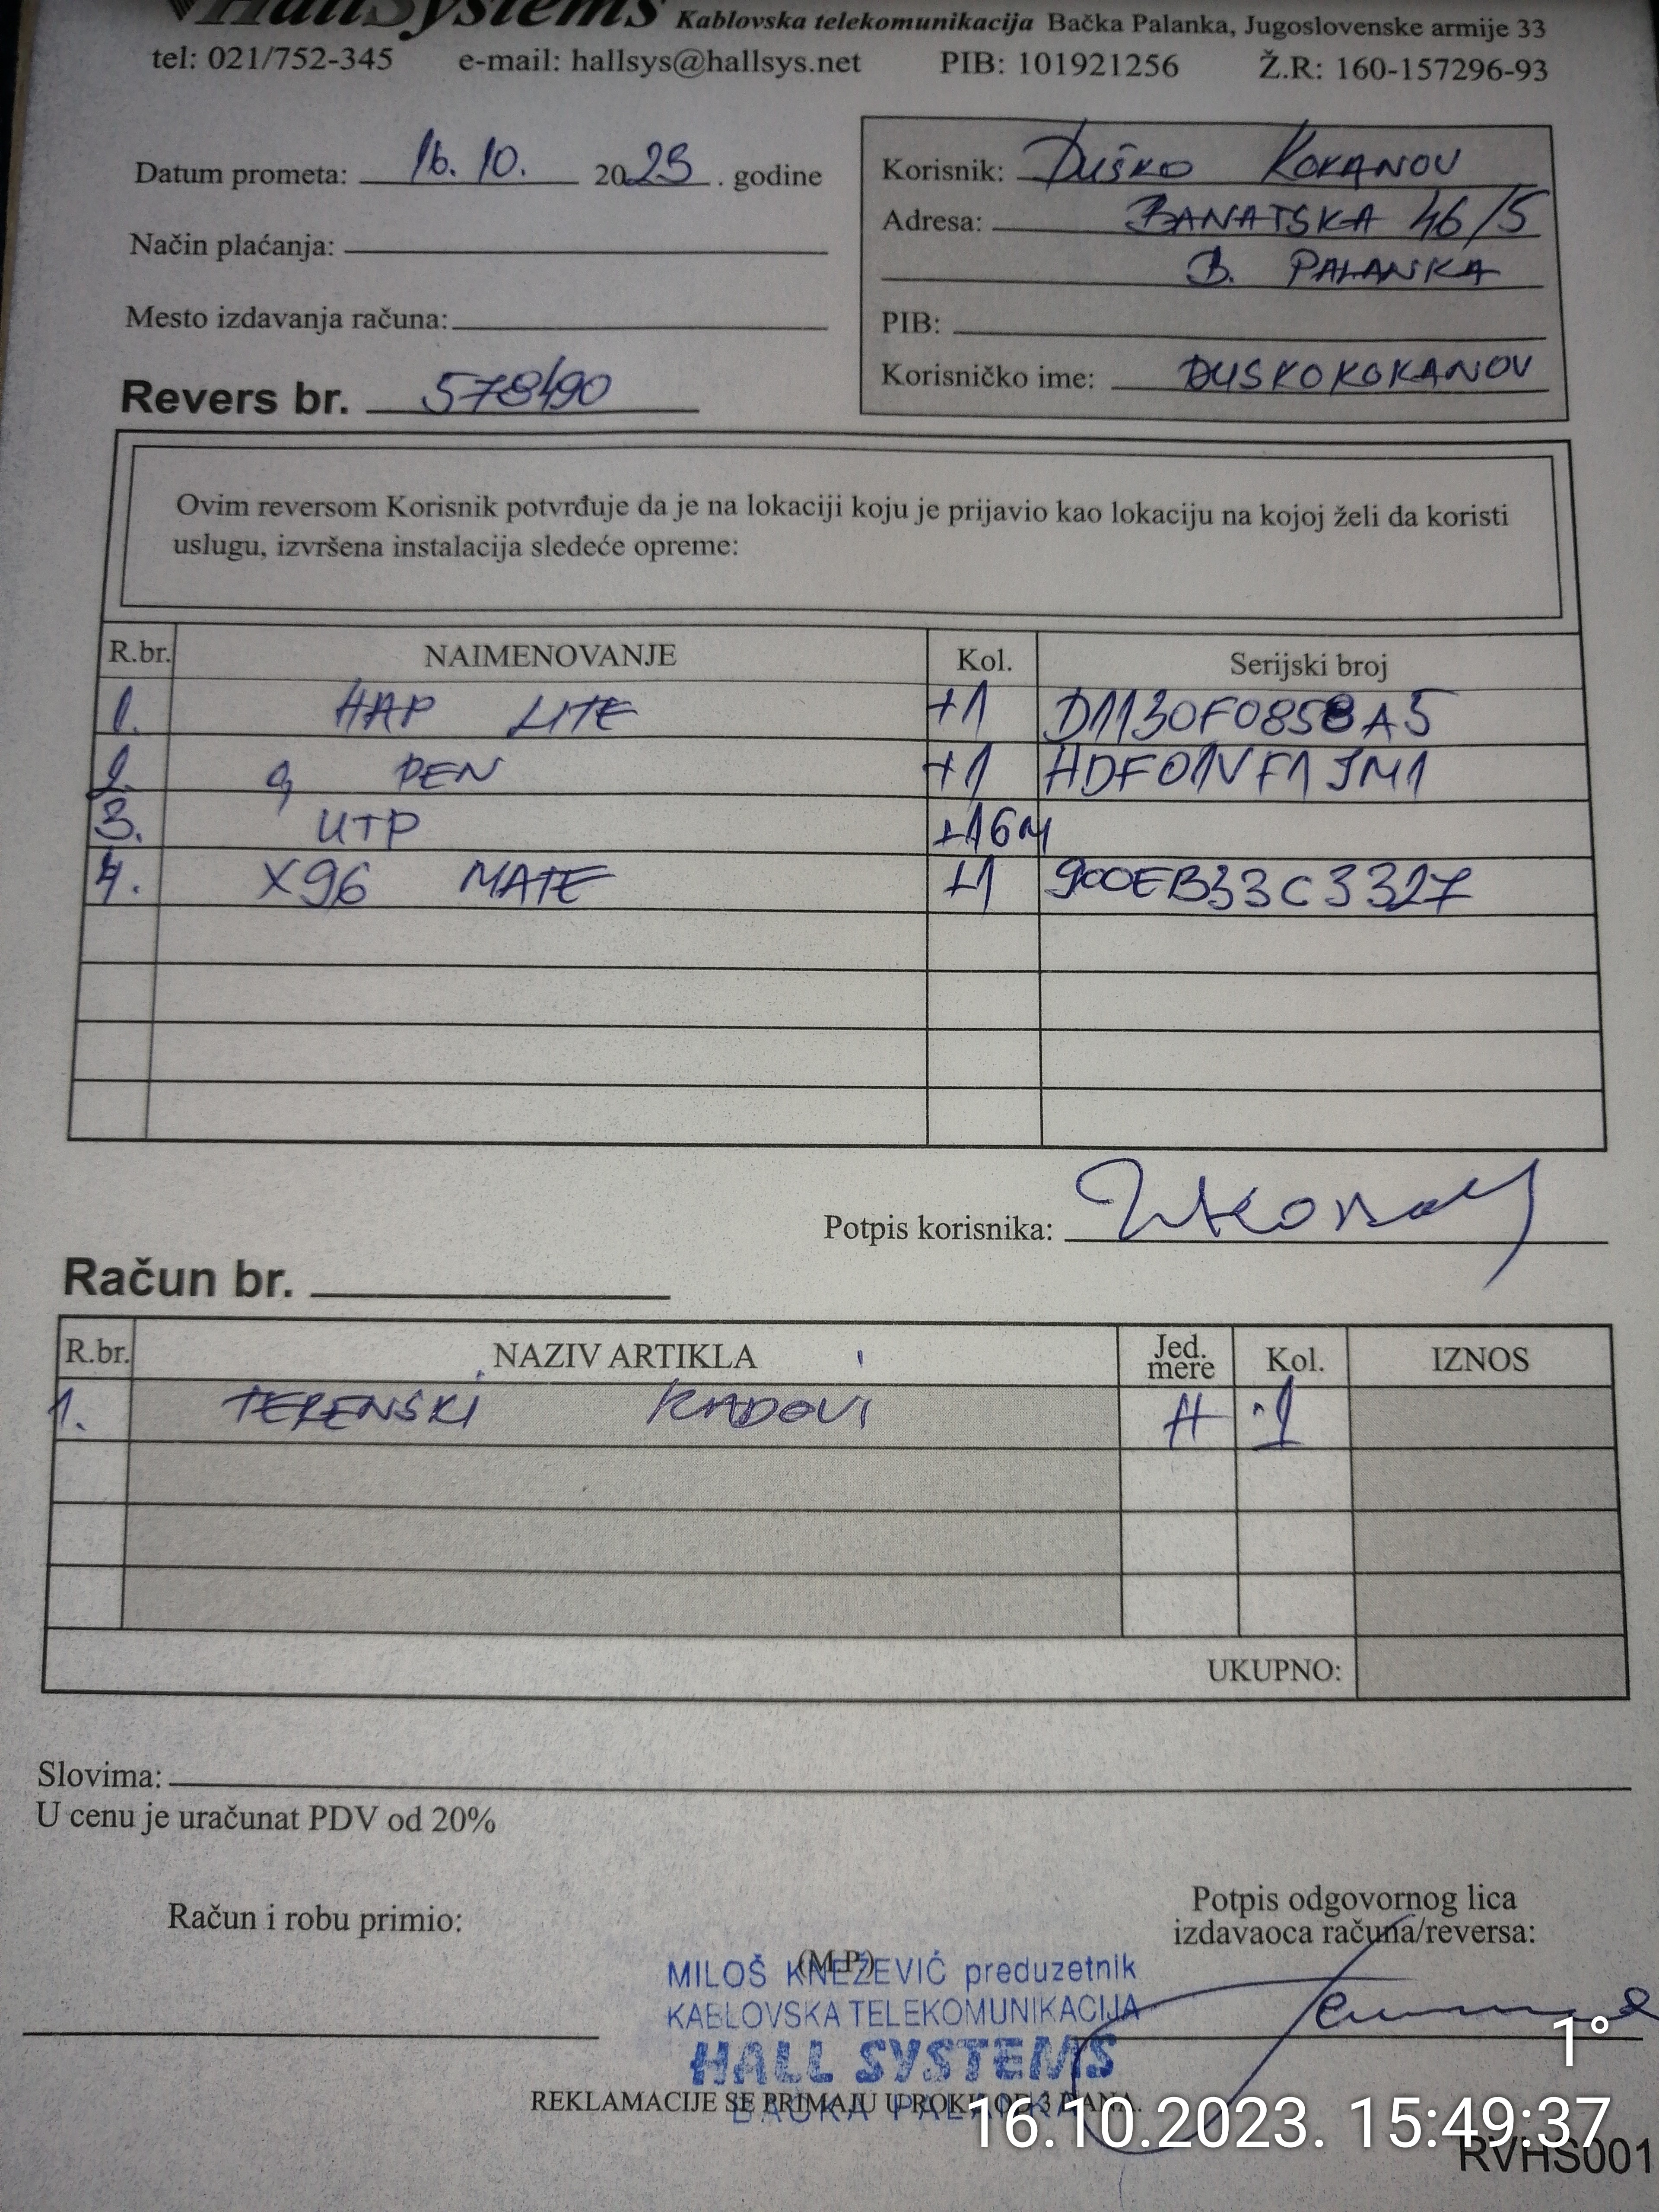 HallSystems Kablovska telekomunikacija Bačka Palanka, Jugoslovenske armije 33
tel: 021/752-345 e-mail: hallsys@hallsys.net PIB: 101921256 Ž.R: 160-157296-93
Datum prometa: 16. 10. 2023. godine
Način plaćanja:
Mesto izdavanja računa:
Revers br. 578/90
Korisnik: Duško KOKANOV
Adresa: BANATSKA 46/5
B. PALANKA
PIB:
Korisničko ime: DUSKOKOKANOV
Ovim reversom Korisnik potvrđuje da je na lokaciji koju je prijavio kao lokaciju na kojoj želi da koristi
uslugu, izvršena instalacija sledeće opreme:
R.br. NAIMENOVANJE Kol. Serijski broj
1. HAP LITE +1 D1130F0858A5
2. PEN +1 HDF01VF1JM1
3. UTP +16M
4. X96 MATE +1 900EB33C3327
Potpis korisnika:
Račun br.
R.br. NAZIV ARTIKLA Jed. mere Kol. IZNOS
1. TERENSKI RADOVI H 1
UKUPNO:
Slovima:
U cenu je uračunat PDV od 20%
Račun i robu primio:
(M.P.)
Potpis odgovornog lica
izdavaoca računa/reversa:
MILOŠ KNEŽEVIĆ preduzetnik
KABLOVSKA TELEKOMUNIKACIJA
HALL SYSTEMS
BAČKA PALANKA
REKLAMACIJE SE PRIMAJU U ROKU OD 3 DANA.
1°
16.10.2023. 15:49:37
RVHS001